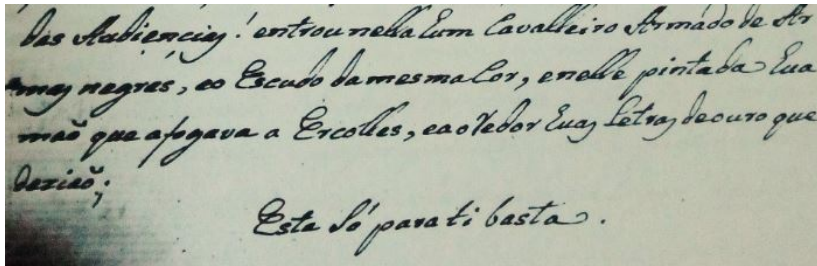 das Audiencias! entrou nella hum Cavalleiro Armado de Ar
mas negras, eo Escudo da mesma Cor, e nelle pintada hua
maõ que afogava a Ercolles, e ao Redor huas Letras de ouro que
deziaõ;
Esta Só para ti basta.